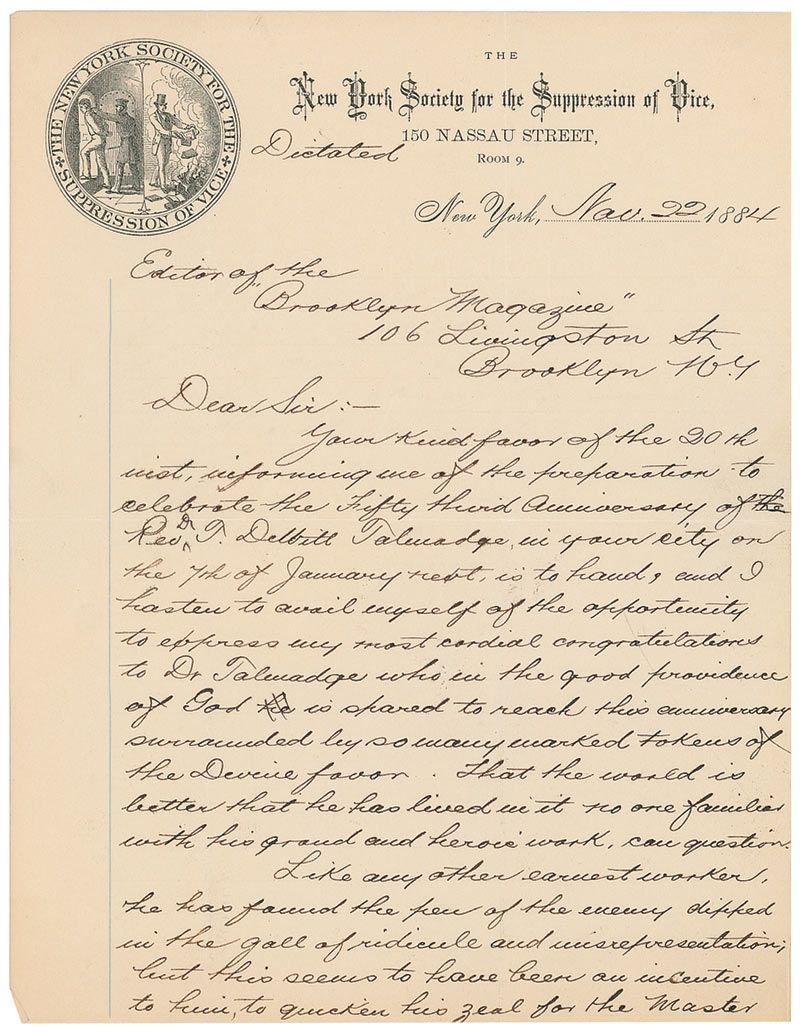 THE NEW YORK SOCIETY FOR THE
SUPPRESSION OF VICE
THE
New York Society for the Suppression of Vice,
150 NASSAU STREET,
Dictated
ROOM 9.
New York, Nov. 22 1884
Editor of the
"Brooklyn Magazine"
106 Livingston St
Brooklyn N.Y
Dear Sir:-
Your kind favor of the 20th
inst, informing me of the preparation to
celebrate the Fifty third Anniversary of the
Rev. Dr T. DeWitt Talmadge, in your city on
the 7th of January next, is to hand, and I
hasten to avail myself of the opportunity
to express my most cordial congratulations
to Dr Talmadge who in the good providence
of God he is spared to reach this anniversary
surrounded by so many marked tokens of
the Devine favor. That the world is
better that he has lived in it no one familiar
with his grand and heroic work, can question.
Like any other earnest worker,
he has found the pen of the enemy dipped
in the gall of ridicule and misrepresentation;
but this seems to have been an incentive
to him, to quicken his zeal for the Master